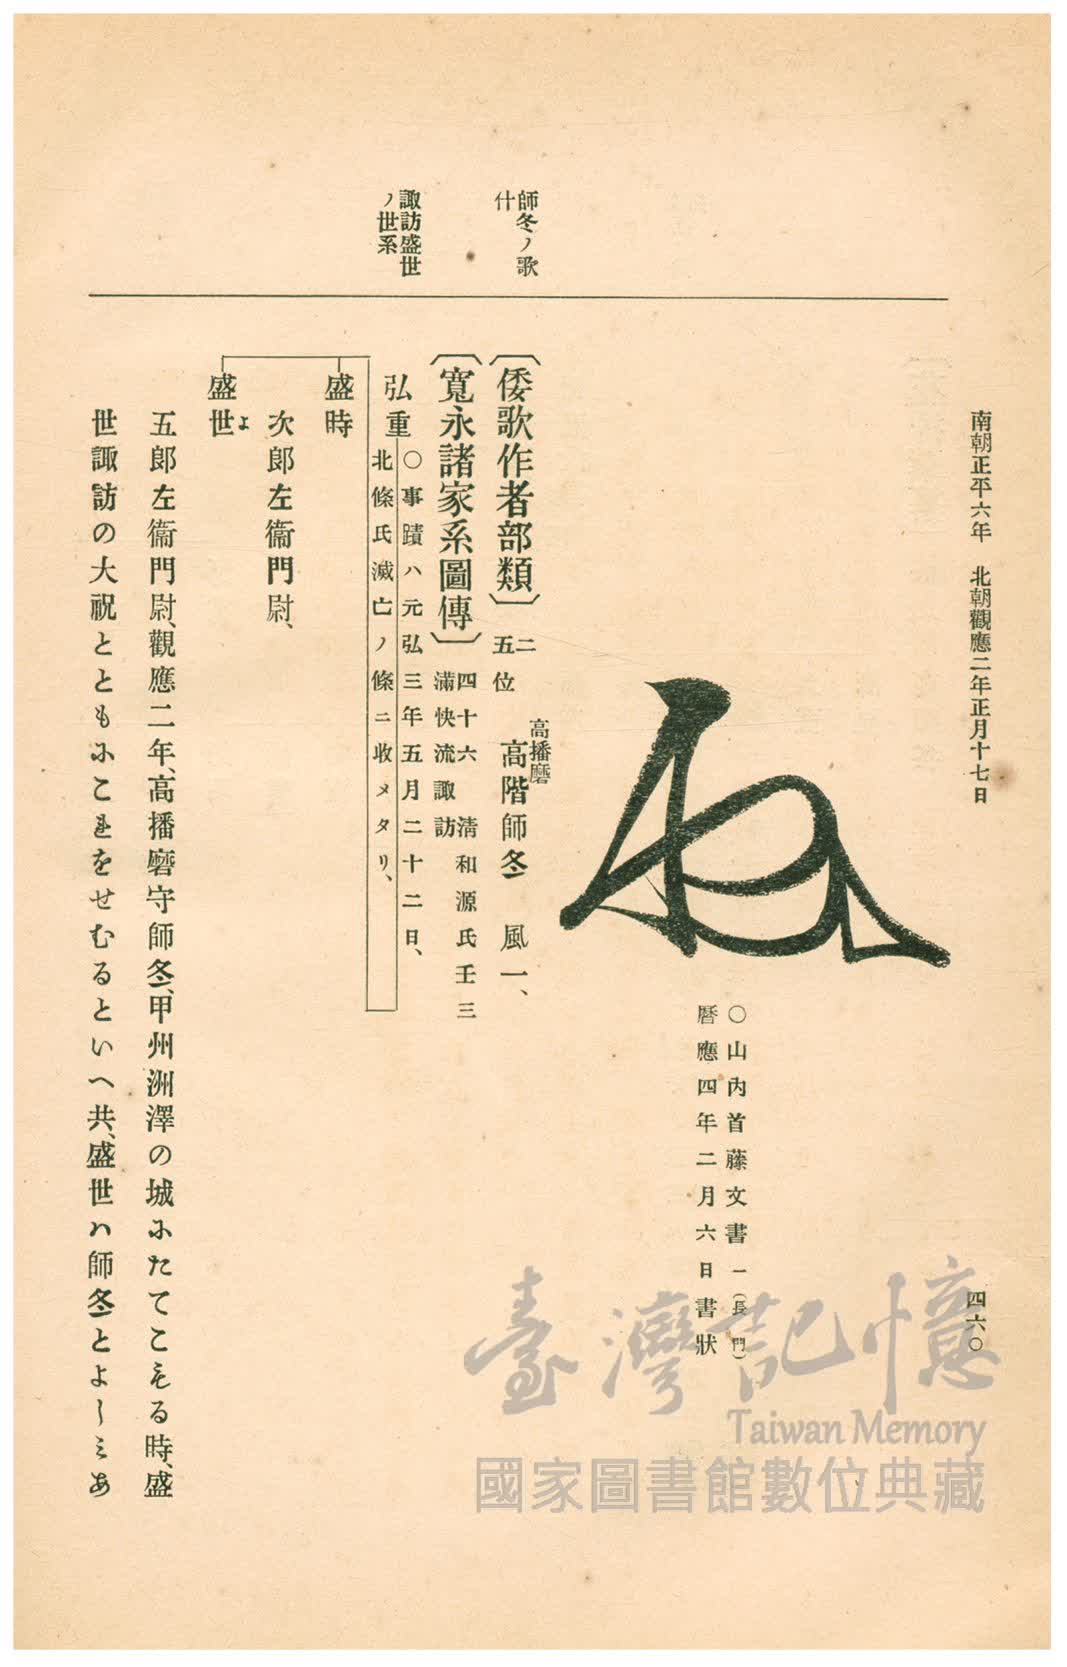 南朝正平六年　北朝觀應二年正月十七日
四六〇
〇山内首藤文書一(長門)
曆應四年二月六日書狀
師冬ノ歌
什
〔倭歌作者部類〕二
五位
高播磨
高階師冬　風一、
諏訪盛世
ノ世系
〔寬永諸家系圖傳〕四十六　淸和源氏壬三
滿快流諏訪
弘重
〇事蹟ハ元弘三年五月二十二日、
北條氏滅亡ノ條ニ收メタリ、
盛時
次郎左衞門尉、
盛世
五郎左衞門尉、觀應二年、高播磨守師冬、甲州洲澤の城にたてこもる時、盛
世諏訪の大祝とともにこれをせむるといへ共、盛世ハ師冬とよしミあ
臺灣記憶
Taiwan Memory
國家圖書館數位典藏